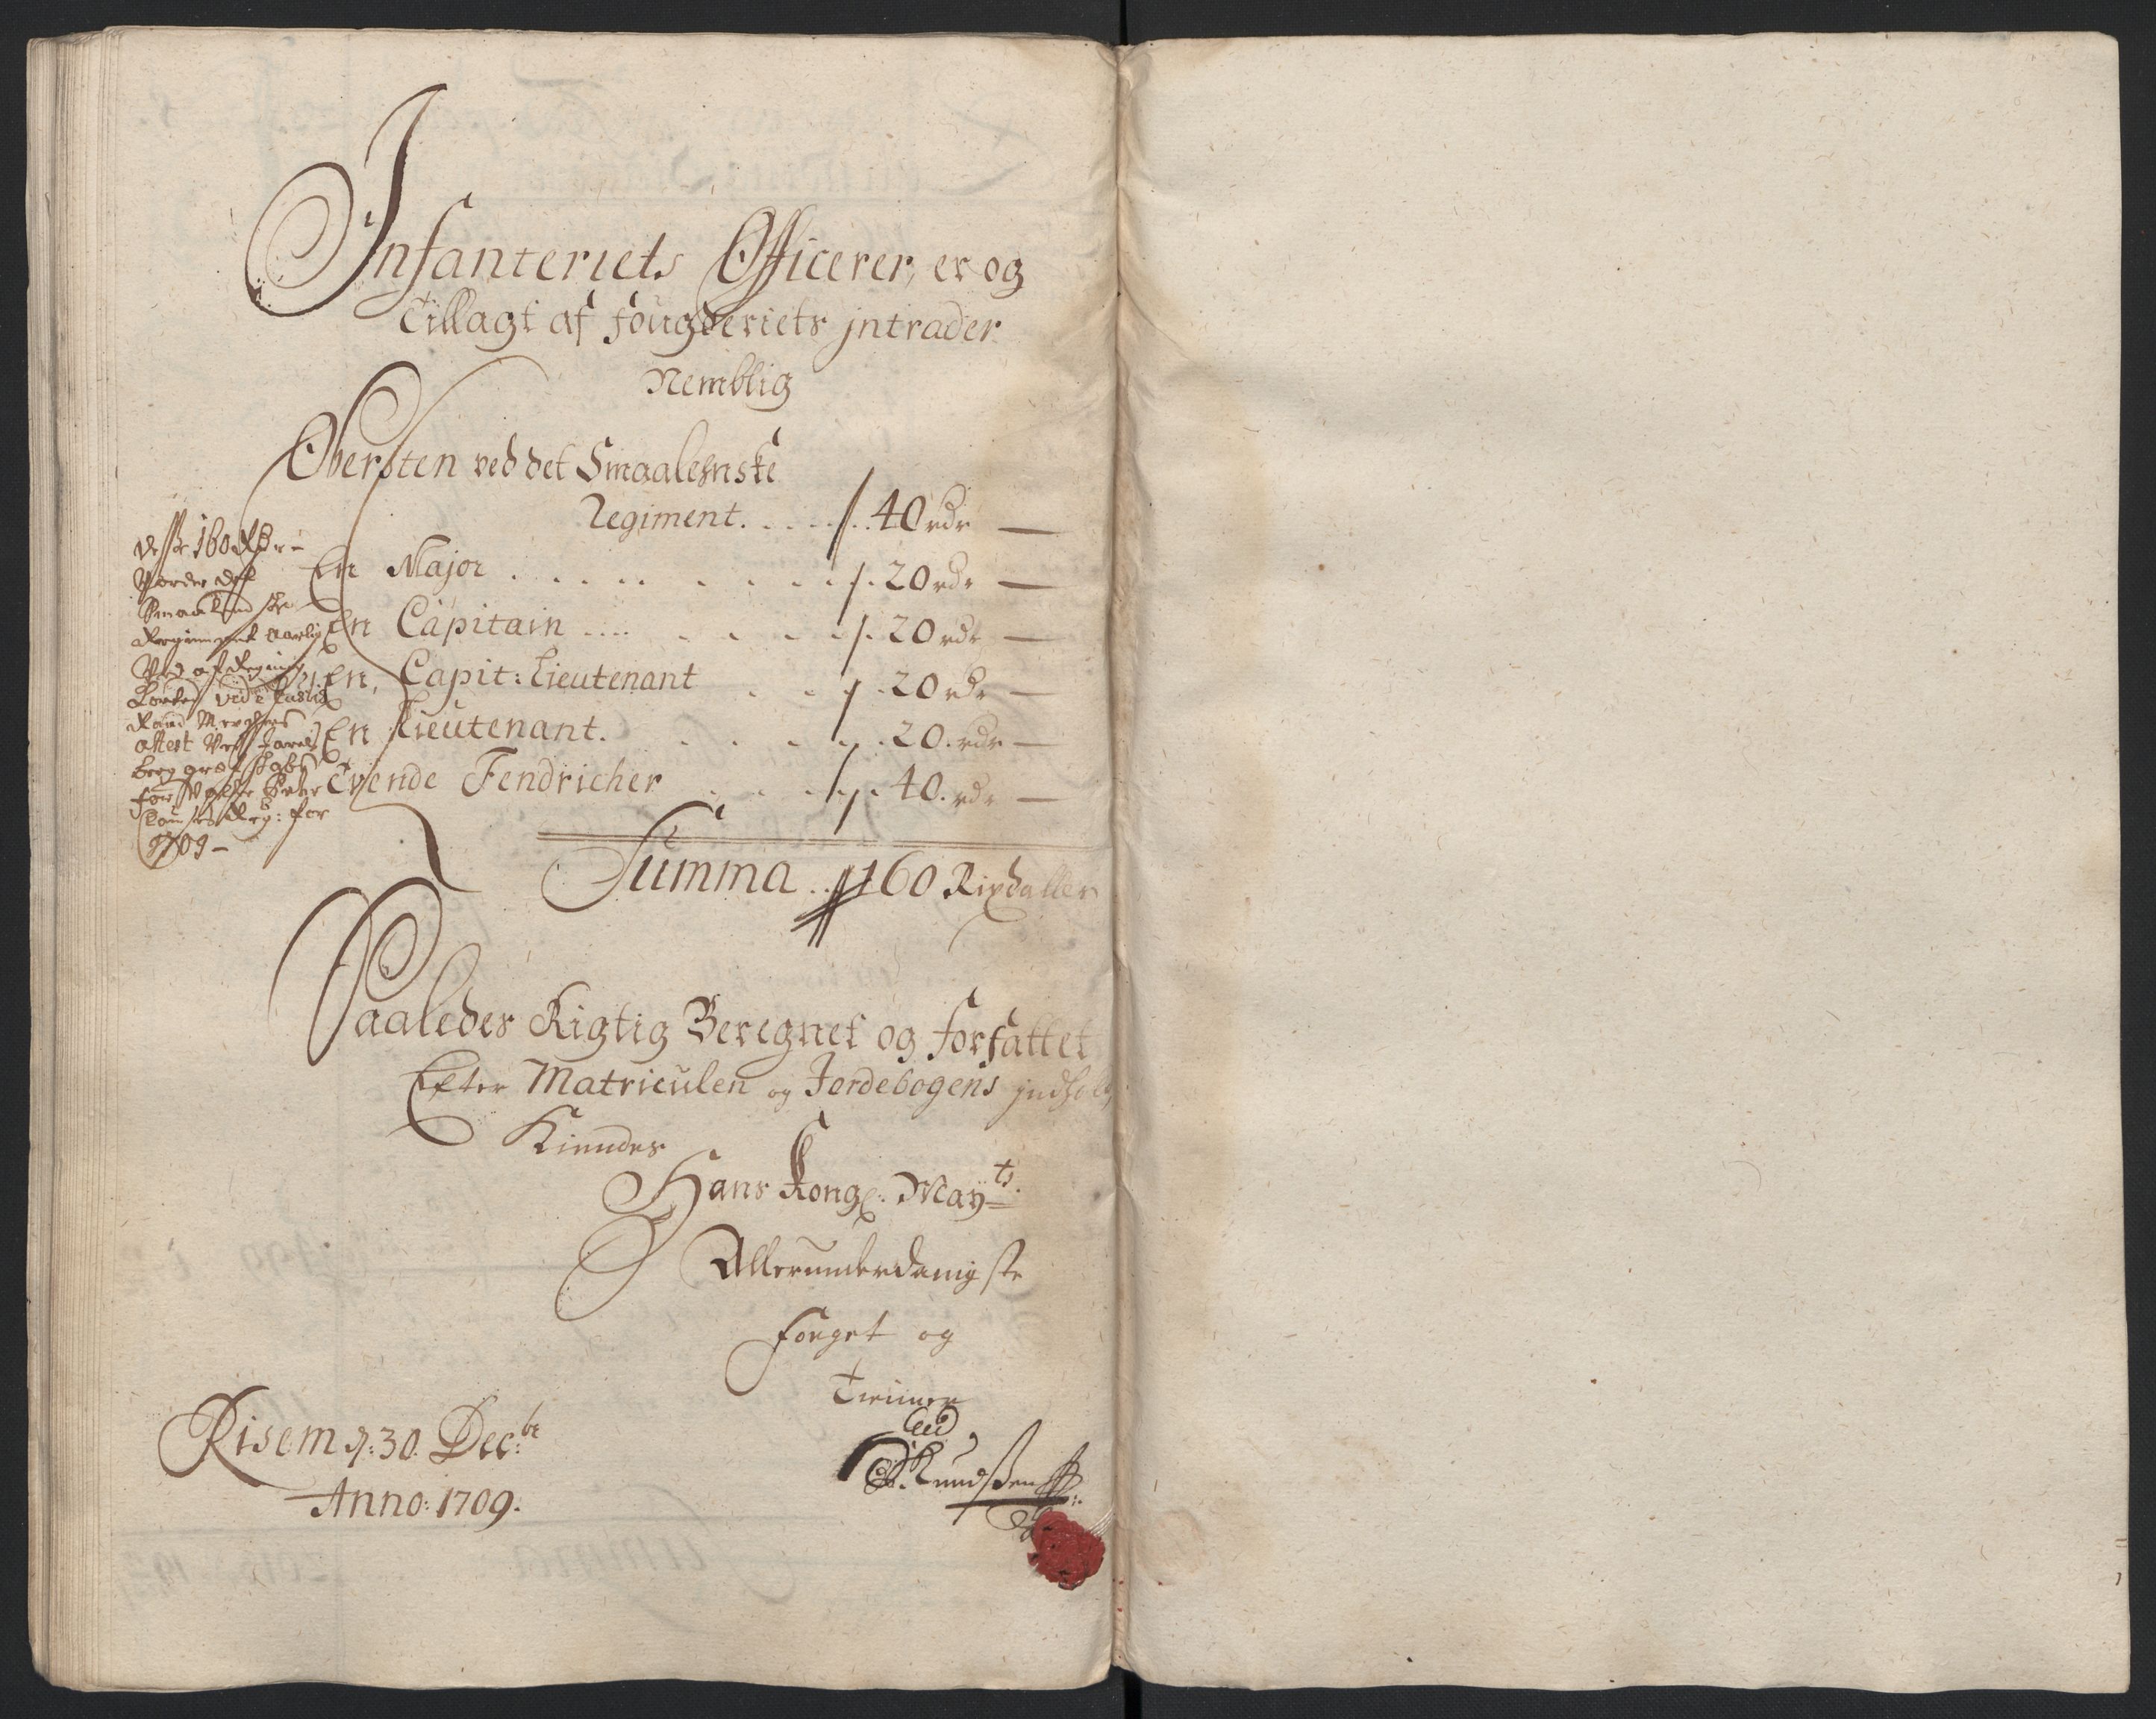 Infanteriets Officerer, er og
Tillagt af fougderiets jntrader
Nemblig
Obersten ved det Smaalehnske
Regiment. . . . . 40 rdr —
En Major . . . . . . . . . . 20 rdr —
En Capitain . . . . . . . . 20 rdr —
En Capit: Lieutenant . . . 20 rdr —
En Lieutenant. . . . . . 20. rdr —
Tvende Fendricher . . . . 40. rdr —
Summa . . 160 Rixdaller
disse 160 Rdr –
Vorder det
Smaalendske
Regimentet aarlig
Ved af Regning
attest
for
1709 –
Saaledes Rigtig Beregnet og forfattet
Efter Matriculen og Jordebogens jndhold
Kiendes
Hans Kongl: Mayts.
Allerunderdanigste
Foeget og
Tienner
Knudssen
Risem d: 30. Dec:br
Anno: 1709.